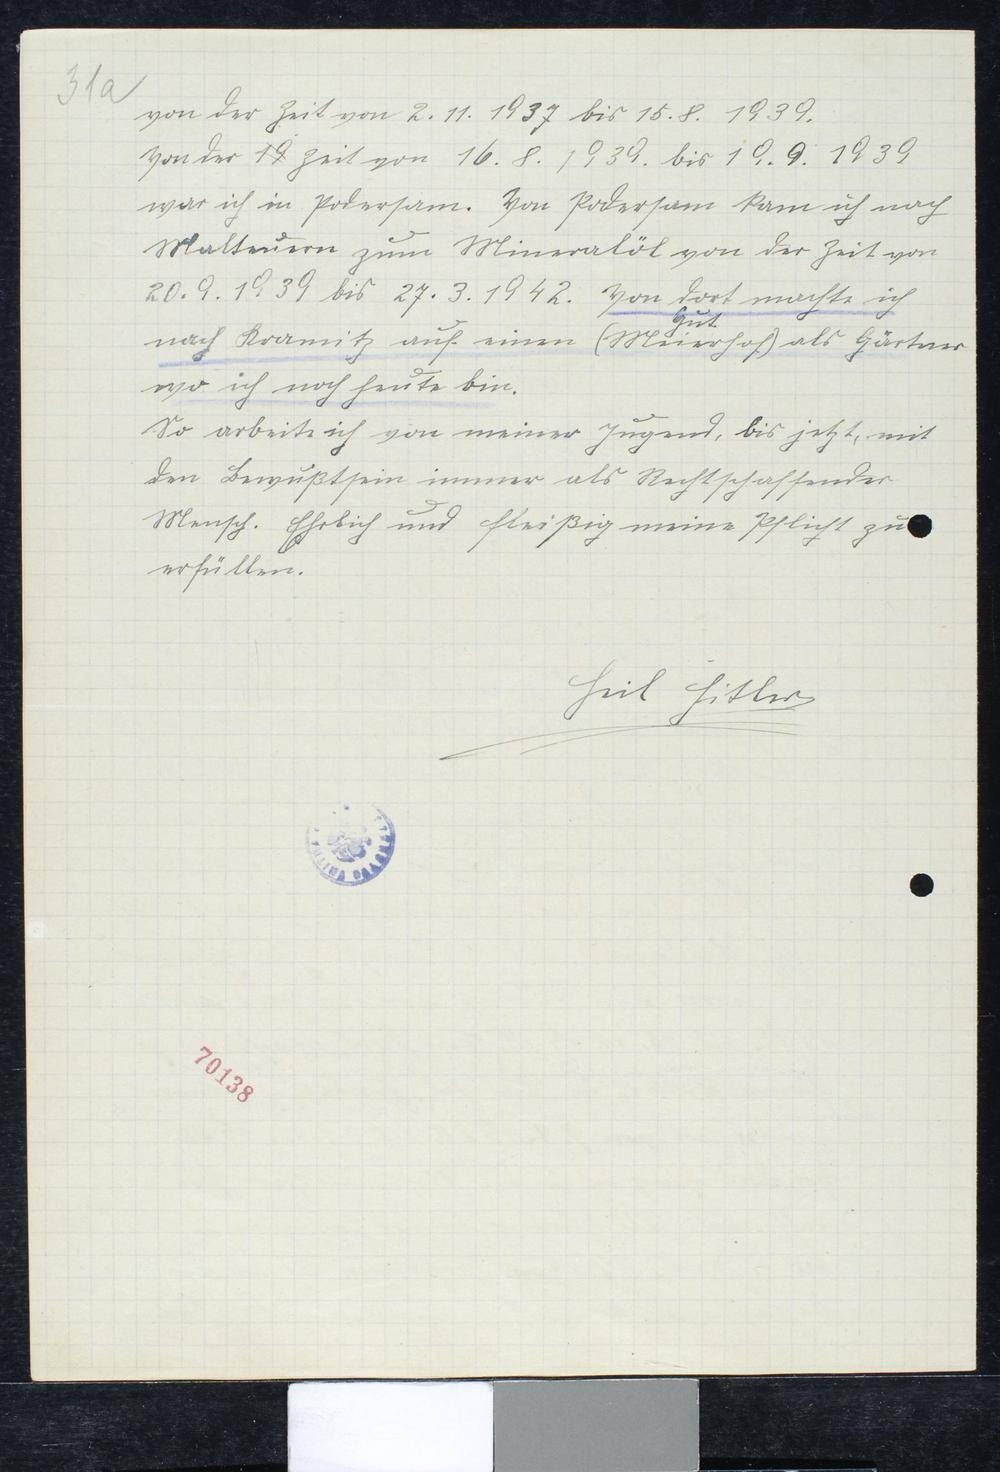 31a
von der Zeit von 2. 11. 1937 bis 15. 8. 1939.
Von der 19 Zeit von 16. 8. 1939. bis 19. 9. 1939
war ich in Podersam. Von Podersam kam ich nach
Malteuern zum Mineralöl von der Zeit von
20. 9. 1939 bis 27. 3. 1942. Von dort machte ich
Gut
nach Kramitz auf einen (Meierhof) als Gärtner
wo ich noch heute bin.
So arbeite ich von meiner Jugend, bis jetzt, mit
den Bewußtsein immer als Rechtschaffender
Mensch. Ehrlich und fleißig meine Pflicht zu
erfüllen.
Heil Hitler
70138